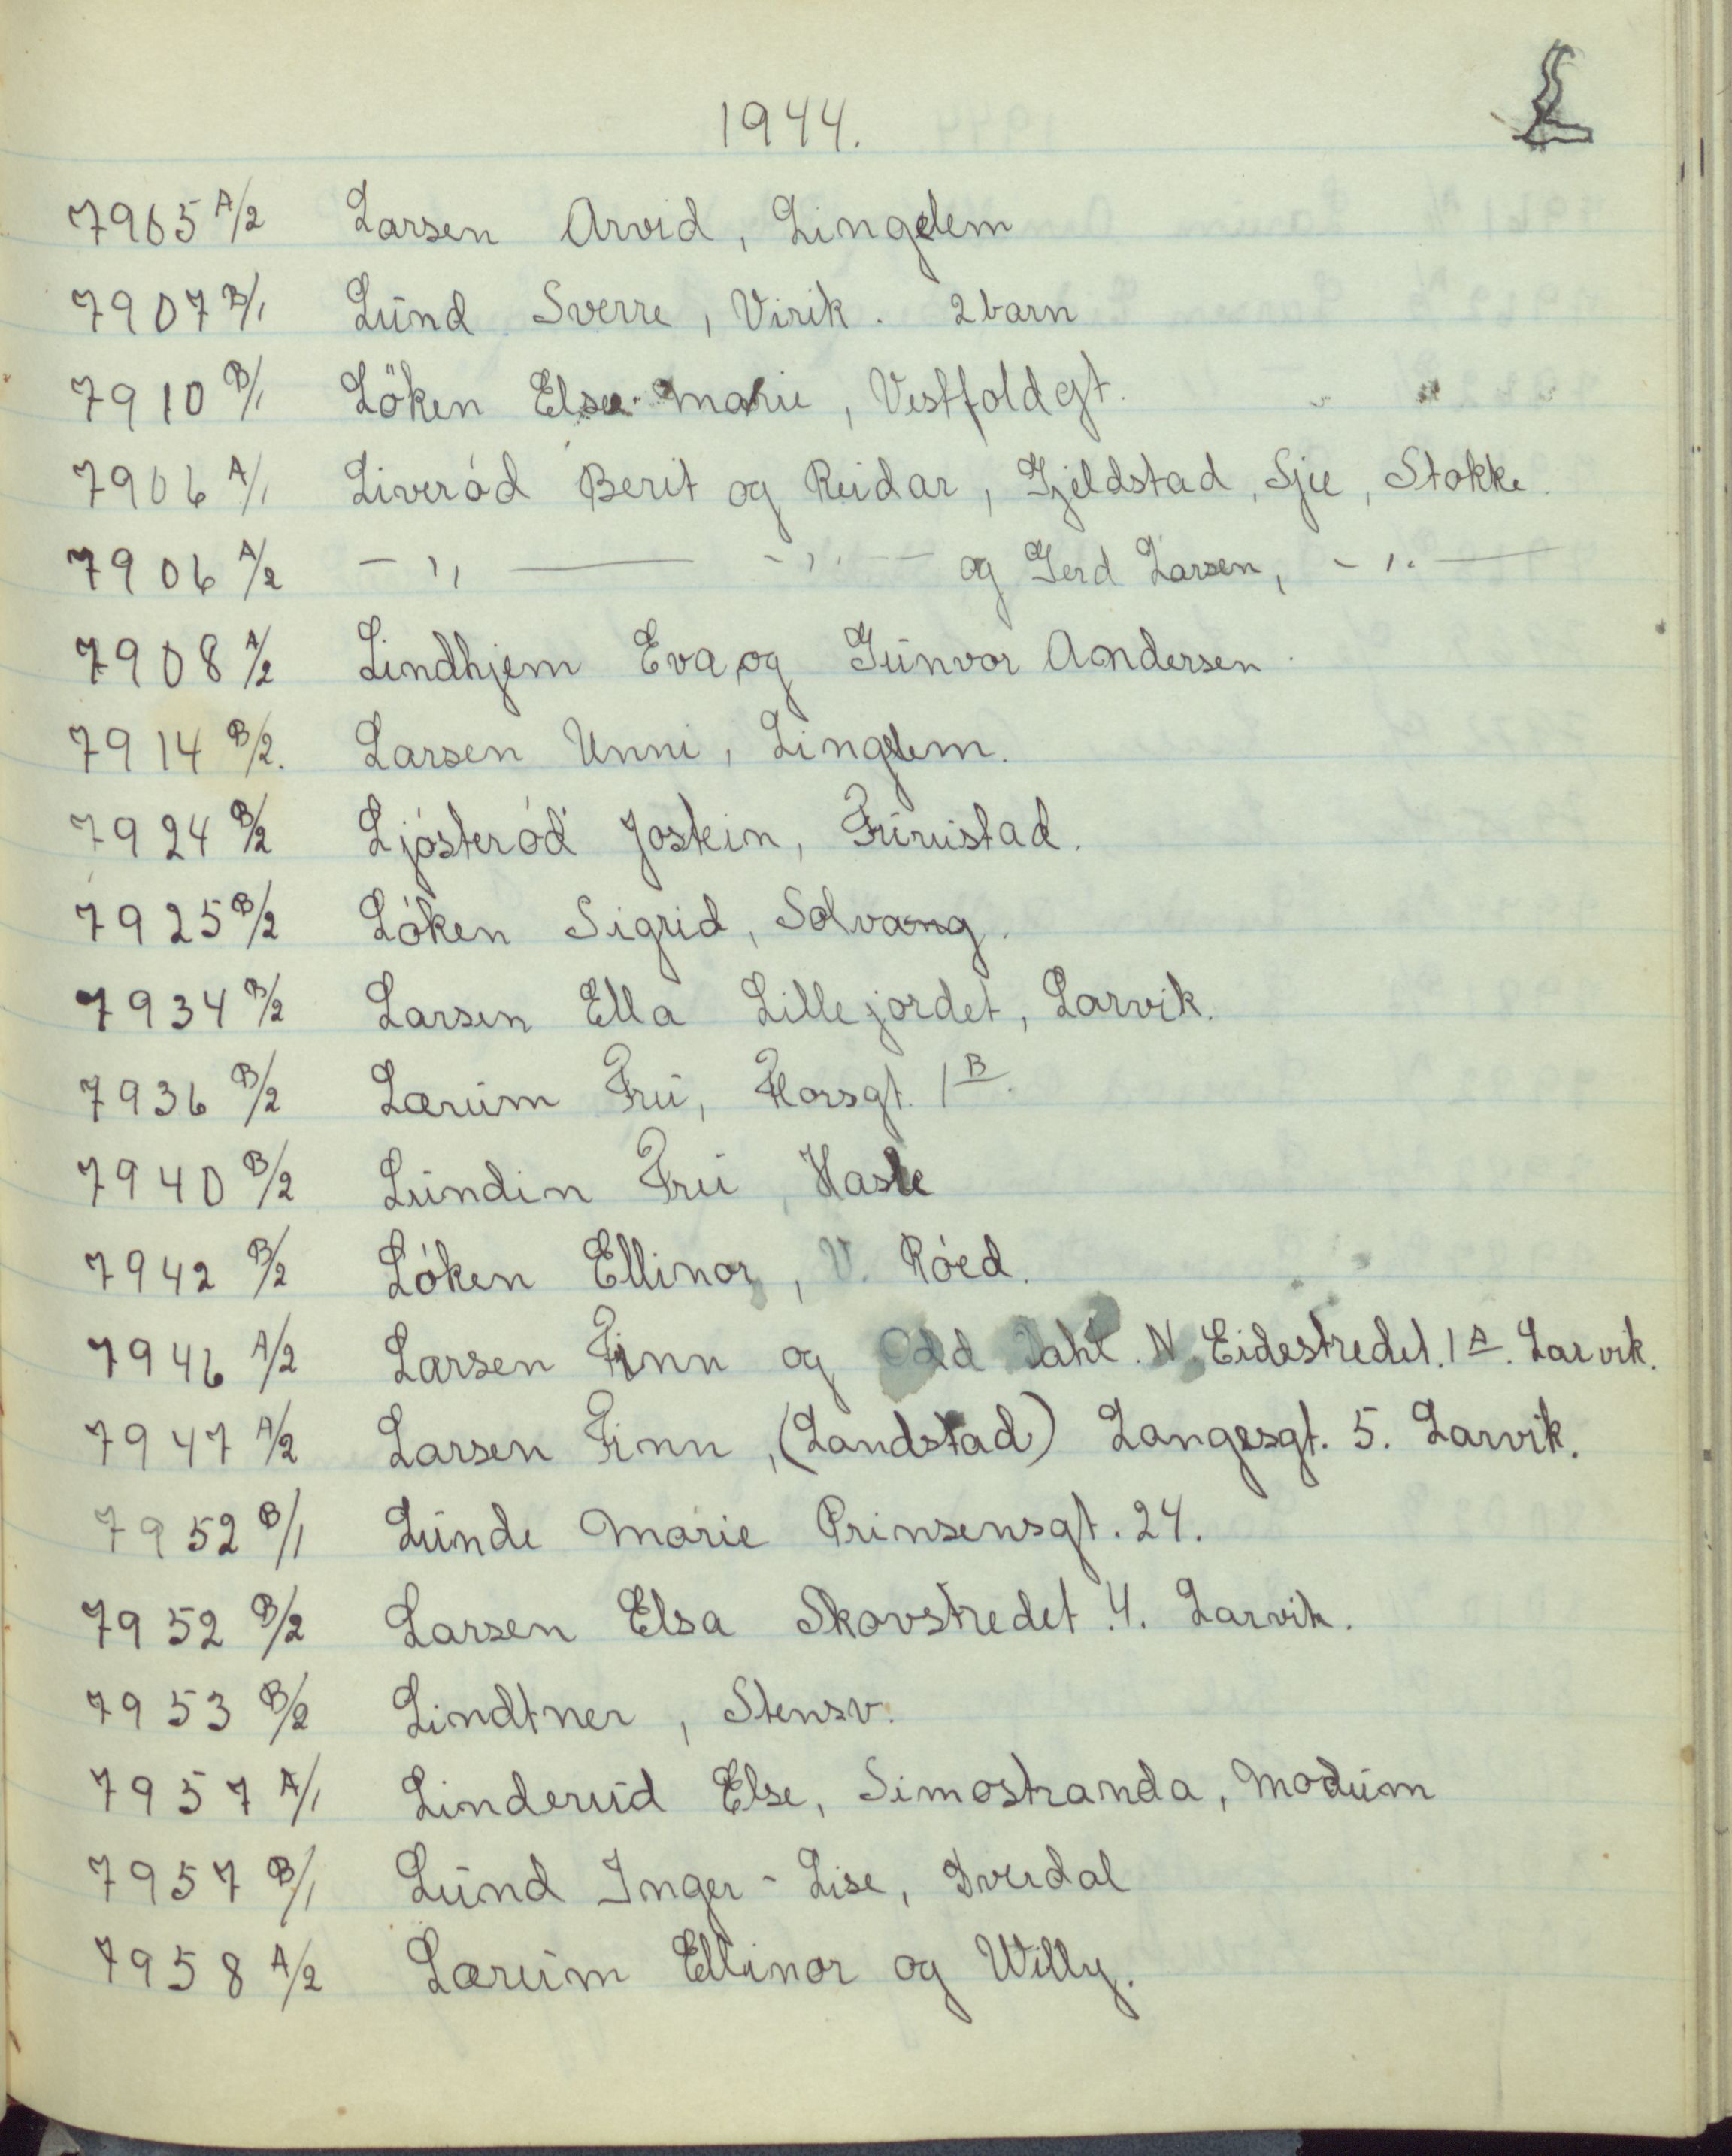 L
1944.
7905 A/2 Larsen Arvid, Lingelem
7907 B/1 Lund Sverre, Virik. 2 barn
7910 B/1 Löken Else-Marie, Vestfoldgt.
7906 A/1 Liveród Berit og Reidar, Gjeldstad, Sje, Stokke.
7906 A/2 - " - - " - og Gerd Larsen, - " -
7908 A/2 Lindhjem Eva og Gunvor Andersen.
7914 B/2. Larsen Unni, Lingelem.
7924 B/2 Ljósteród Jostein, Furustad.
7925 B/2 Lóken Sigrid, Solvang.
7934 B/2 Larsen Ella Lillejordet, Larvik.
7936 B/2 Lærum Fru, Florsgt. 1 B.
7940 B/2 Lundin Fru, Hasle
7942 B/2 Lóken Ellinor, V. Róed.
7946 A/2 Larsen Finn og Odd Dahl. N. Eidestredet. 1 A. Larvik.
7947 A/2 Larsen Finn, (Landstad) Langesgt. 5. Larvik.
7952 B/1 Lunde Marie Prinsensgt. 24.
7952 B/2 Larsen Elsa Skovstredet 4. Larvik.
7953 B/2 Lindtner, Stensv.
7957 A/1 Linderud Else, Simostranda, Modum
7957 B/1 Lund Inger-Lise, Dverdal
7958 A/2 Lærum Ellinor og Willy.